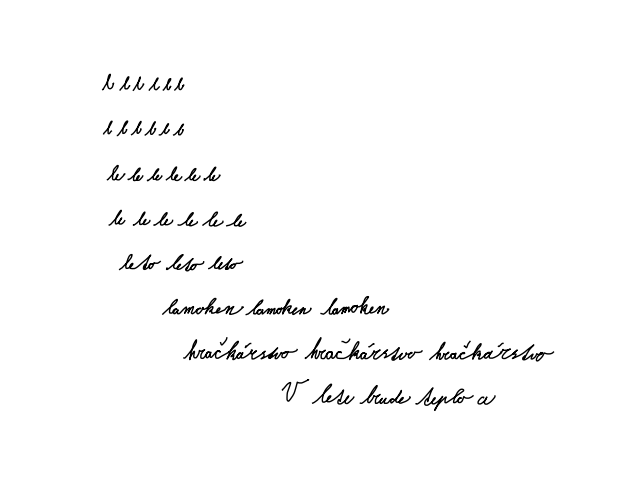 l l l l l l
l l l l l l
le le le le le le
le le le le le le
leto leto leto
lamoken lamoken lamoken
hračkárstvo hračkárstvo hračkárstvo
V lete brude teplo a